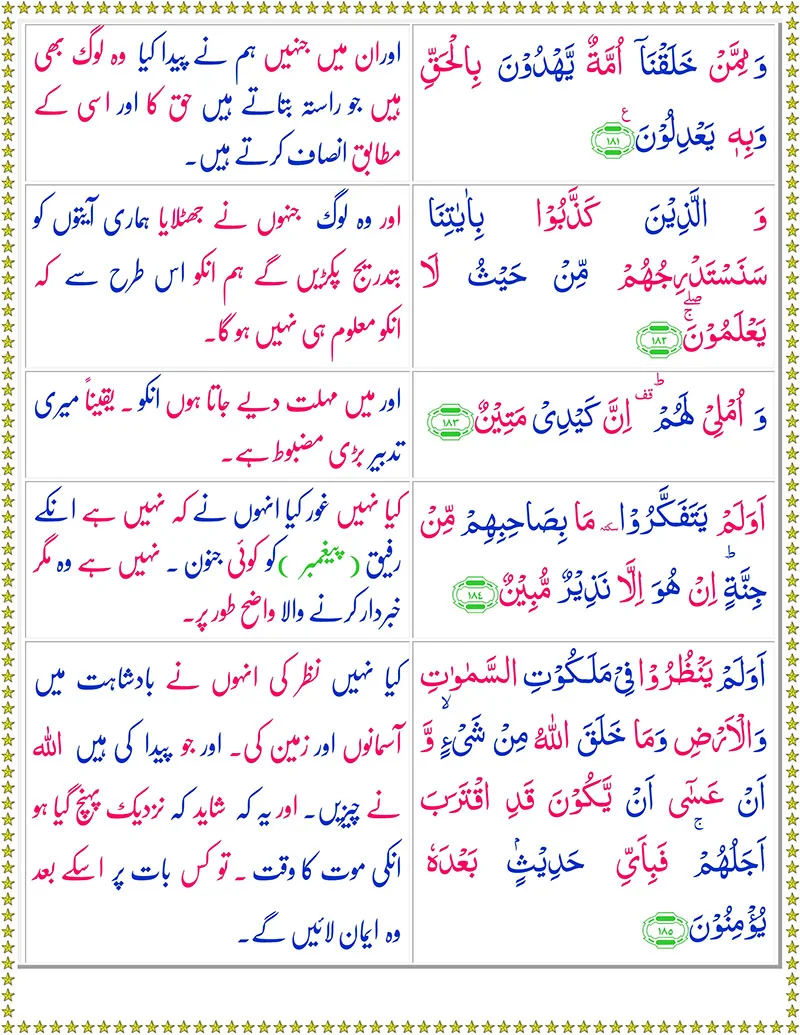 وَ مِمَّنْ خَلَقْنَاۤ اُمَّةٌ یَّهْدُوْنَ بِالْحَقِّ
وَبِهٖ یَعْدِلُوْنَ ۧ ﴿۱۸۱﴾
اوران میں جنہیں ہم نے پیدا کیا وہ لوگ بھی
ہیں جو راستہ بتاتے ہیں حق کا اور اسی کے
مطابق انصاف کرتے ہیں۔
وَ الَّذِیْنَ كَذَّبُوْا بِاٰیٰتِنَا
سَنَسْتَدْرِجُهُمْ مِّنْ حَیْثُ لَا
یَعْلَمُوْنَ ۖۚ ﴿۱۸۲﴾
اور وہ لوگ جنہوں نے جھٹلایا ہماری آیتوں کو
بتدریج پکڑیں گے ہم انکو اس طرح سے کہ
انکو معلوم ہی نہیں ہو گا۔
وَ اُمْلِیْ لَهُمْ ؕ قف اِنَّ كَیْدِیْ مَتِیْنٌ ﴿۱۸۳﴾
اور میں مہلت دیے جاتا ہوں انکو۔ یقیناً میری
تدبیر بڑی مضبوط ہے۔
اَوَلَمْ یَتَفَكَّرُوْا سكتہ مَا بِصَاحِبِهِمْ مِّنْ
جِنَّةٍ ؕ اِنْ هُوَ اِلَّا نَذِیْرٌ مُّبِیْنٌ ﴿۱۸٤﴾
کیا نہیں غور کیا انہوں نے کہ نہیں ہے انکے
رفیق (پیغمبر) کو کوئی جنون۔ نہیں ہے وہ مگر
خبردار کرنے والا واضح طور پر۔
اَوَلَمْ یَنْظُرُوْا فِیْ مَلَكُوْتِ السَّمٰوٰتِ
وَالْاَرْضِ وَمَا خَلَقَ اللهُ مِنْ شَیْءٍ ۙ وَّ
اَنْ عَسٰۤی اَنْ یَّكُوْنَ قَدِ اقْتَرَبَ
اَجَلُهُمْ ۚ فَبِاَیِّ حَدِیْثٍۭ بَعْدَهٗ
یُؤْمِنُوْنَ ﴿۱۸۵﴾
کیا نہیں نظر کی انہوں نے بادشاہت میں
آسمانوں اور زمین کی۔ اور جو پیدا کی ہیں اللہ
نے چیزیں۔ اور یہ کہ شاید کہ نزدیک پہنچ گیا ہو
انکی موت کا وقت۔ تو کس بات پر اسکے بعد
وہ ایمان لائیں گے۔